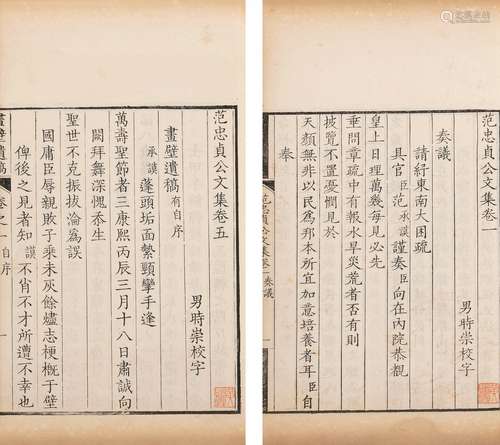 范忠貞公文集卷一
男時崇校字
奏議
請紓東南大困疏
具官臣范承謨謹奏臣向在內院恭覩
皇上日理萬幾每見必先
垂問章疏中有報水旱災荒者否有則
披覽不置憂惻見於
天顏無非以民為邦本所宜加意培養者耳臣自
奉
范忠貞公文集卷一 奏議 一
范忠貞公文集卷五
男時崇校字
畫壁遺稿有自序
承謨蓬頭垢面縶頸攣手逢
萬壽聖節者三康熙丙辰三月十八日肅誠向
闕拜舞深愧忝生
聖世不克振拔淪為誤
國庸臣辱親敗子乘未灰餘燼志梗概于壁
俾後之見者知謨不肖不才所遭不幸也
畫壁遺稿 卷之一 自序 一